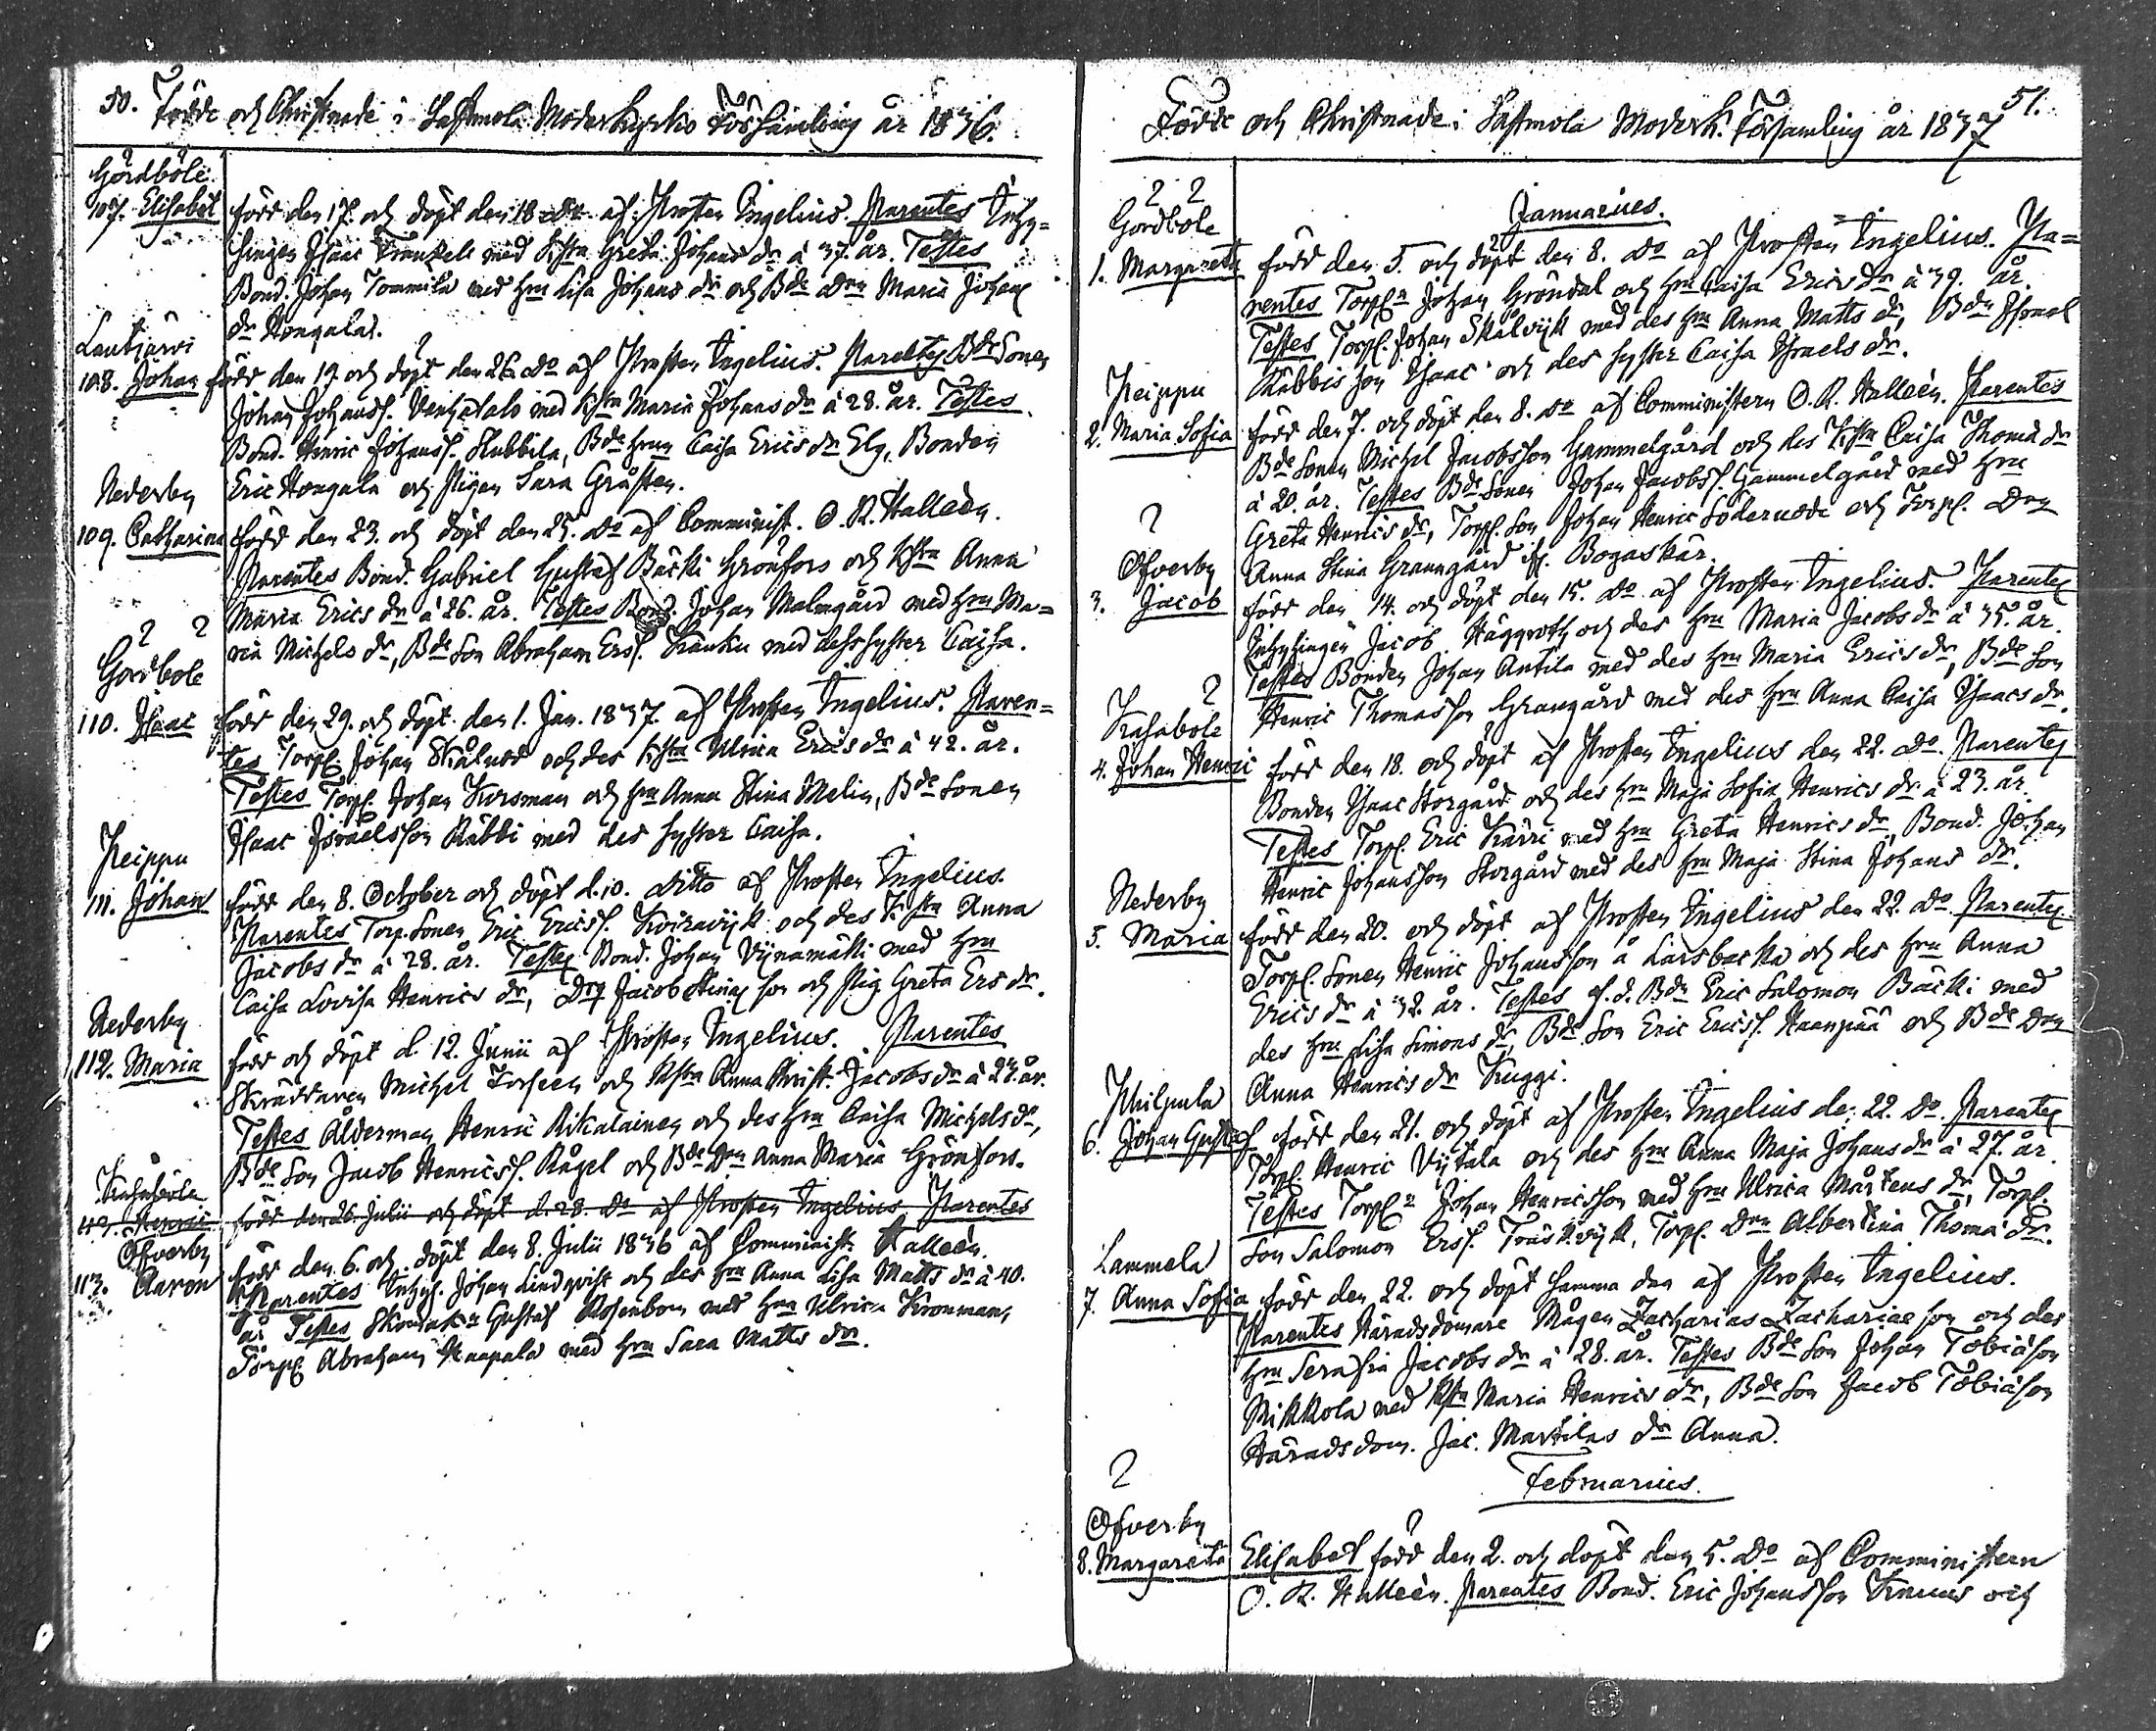 50. Födde och Christnade i Sastmola Moderkyrko Församling år 1836.
Gårdböle
107. Elisabet född den 17. och döpt den 18 do af Prosten Ingelius. Parentes Inhy=
singen Isaac Frankels med Hstr Greta Johans dr à 37. år. Testes
Bond. Johan Tommila med hru Lisa Johans dr och Bde drn Maria Johans
dr Hongala.
Lautjärvi
108. Johan född den 19. och döpt den 26 do af Prosten Ingelius. Parentes Bde Sonen
Johan Johanss. med Hstr Maria Johans dr à 28. år. Testes
Bond. Henric Johanss. Klubbila, Bde hrun Caisa Erics dr Elg, Bonden
Eric Hongala och Pigan Sara Gråsten.
Nederby
109. Catharina född den 23. och döpt den 25. do af Comminist. O. R. Halleén.
Parentes Bond. Gabriel Gustaf Bäcki Grönfors och Hstr Anna
Maria Erics dr à 26. år. Testes Bond. Johan Malmgård med hru Ma=
ria Michels dr, Bde Son Abraham Erss. Kranku med dess syster Caisa.
Gårdböle
110. Isaac född den 29. och döpt den 1. Jan. 1837. af Prosten Ingelius. Paren=
tes Torp. Johan Skålnäs och des Hstr Ulrica Erics dr à 42. år.
Testes Torp. Johan Kursman och hru Anna Stina Melin, Bde Sonen
Isaac Israelsson Räbbi med des syster Caisa.
Peippu
111. Johan född den 8. October och döpt d. 10. ditto af Prosten Ingelius.
Parentes Torp. Sonen Eric Ericss. Koiravijk och des Hstr Anna
Jacobs dr à 28. år. Testes Bond. Johan Vijnamäki med hru
Caisa Lovisa Henrics dr, Drg Jacob son och Pig. Greta Ers dr.
Nederby
112. Maria född och döpt d. 12. Junii af Prosten Ingelius. Parentes
Skräddaren Michel Forseen och Hstr Anna Christ. Jacobs dr à 27. år.
Testes Ålderman Henric Rikalainen och des hru Caisa Michels dr,
Bde Son Jacob Henricss. Rågel och Bde drn Anna Maria Grönfors.
Kasaböle
113. Henric född den 26. Julii och döpt d. 28. do af Prosten Ingelius Parentes
Öfverby
113. Aaron född den 6. och döpt den 8. Julii 1836 af Comminist. Halleén.
Parentes Inhys. Johan Lindqvist och des hru Anna Lisa Matts dr à 40.
år Testes Skomak:n Gustaf Rosenbom med hru Ulrica Kronman,
Torp. Abraham Haapala med hru Sara Matts dr.
51.
Födde och Christnade i Sastmola Moderk. Församling år 1837
Januarius.
Gårdböle
1. Margareta född den 5. och döpt den 8. do af Prosten Ingelius. Pa=
rentes Torp:n Johan Gröndal och hru Caisa Erics dr à 39. år.
Testes Torp. Johan Skålvijk med des hru Anna Matts dr, Bdn Israel
Räbbis son Isaac och des syster Caisa Israels dr.
Peippu
2. Maria Sofia född den 7. och döpt den 8. do af Comministern O. R. Halleén. Parentes
Bde Sonen Michel Jacobsson Gammelgård och des Hstr Caisa Thomæ dr
à 20. år. Testes Bde Sonen Johan Jacobss. Gammelgård med hru
Greta Henrics dr, Torp. Son Johan Henric Södernäs och Torp. Drn
Anna Stina Granngård Bogaskär.
Öfverby
3. Jacob född den 14. och döpt den 15. do af Prosten Ingelius. Parentes
Inhysingen Jacob Häggroth och des hru Maria Jacobs dr à 35. år.
Testes Bonden Johan Antila med des hru Maria Erics dr, Bde Son
Henric Thomasson Grangård med des hru Anna Caisa Isaacs dr.
Kasaböle
4. Johan Henric född den 18. och döpt af Prosten Ingelius den 22. do. Parentes
Bonden Isaac Storgård och des hru Maja Sofia Henrics dr à 23. år.
Testes Torp. Eric Kärri med hru Greta Henrics dr, Bond. Johan
Henric Johansson Storgård med des hru Maja Stina Johans dr.
Nederby
5. Maria född den 20. och döpt af Prosten Ingelius den 22. do Parentes
Torp. Sonen Henric Johansson å Larsbacka och des hru Anna
Erics dr à 32. år. Testes f.d. Bdn Eric Salomon Bäcki med
des hru Lisa Simons dr, Bde Son Eric Ericss. Haanpää och Bde Drn
Anna Henrics dr Kuggi.
Philpula
6. Johan Gustaf född den 21. och döpt af Prosten Ingelius de: 22. do Parentes
Torp. Henric Vijtala och des hru Anna Maja Johans dr à 27. år.
Testes Torp:n Johan Henricsson med hru Ulrica Mårtens dr, Torp.
Son Salomon Erss. Träskvijk, Torp. Drn Albertina Thomæ dr.
Lammela
7. Anna Sofia född den 22. och döpt samma dag af Prosten Ingelius.
Parentes Häradsdomare Mågen Zacharias Zachariæson och des
hru Serafia Jacobs dr à 28. år. Testes Bde Son Johan Tobiæson
Mikkola med Hstr Maria Henrics dr, Bde Son Jacob Tobiæson
Häradsdom. Jac. Martilas dr Anna.
Februarius.
Öfverby
8. Margareta Elisabet född den 2. och döpt den 5. do af Comministern
O. R. Halleén. Parentes Bond. Eric Johansson Knuus och